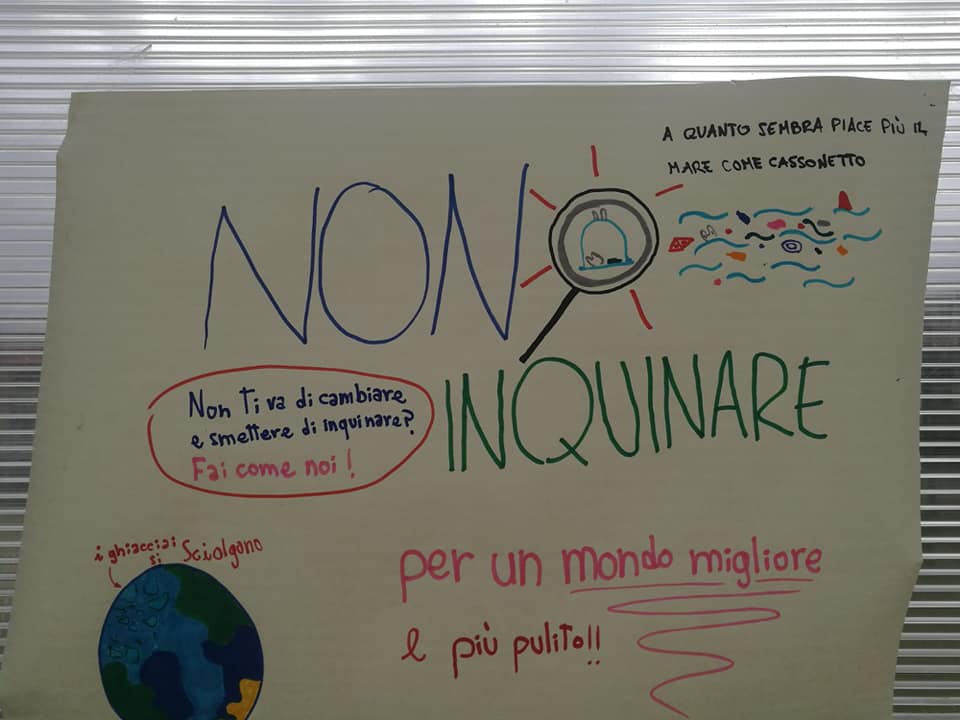 A QUANTO SEMBRA PIACE PIÙ IL
MARE COME CASSONETTO
NON
INQUINARE
Non Ti va di cambiare
e smettere di inquinare?
Fai come noi!
i ghiacciai si Sciolgono
per un mondo migliore
e più pulito!!